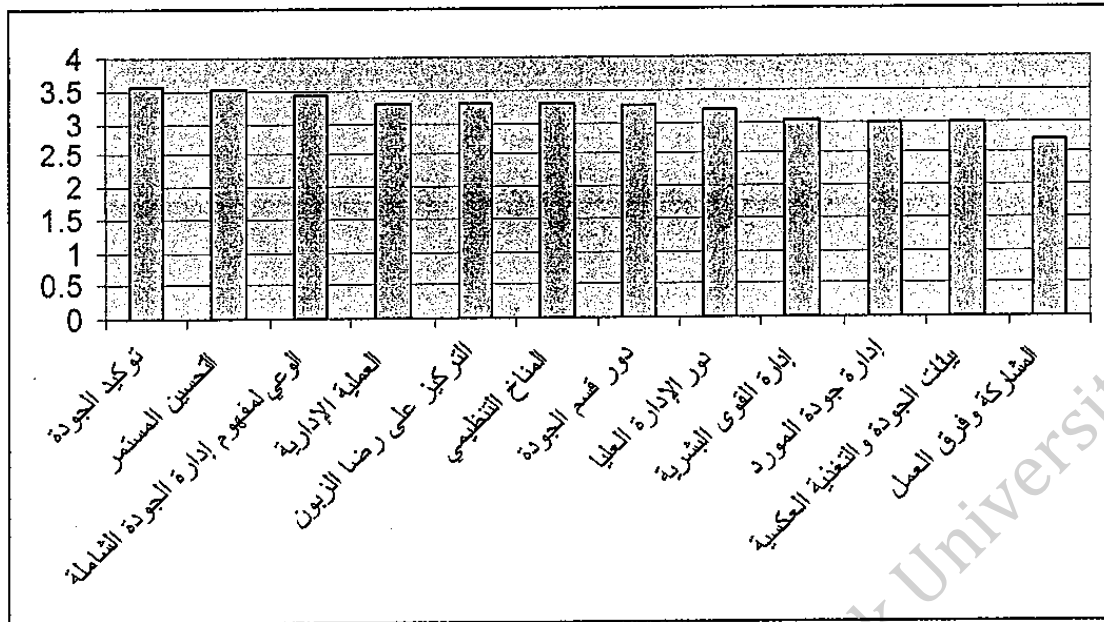 4
3.5
3
2.5
2
1.5
1
0.5
0
توكيد الجودة
التحسين المستمر
الوعي لمفهوم إدارة الجودة الشاملة
العملية الإدارية
التركيز على رضا الزبون
المناخ التنظيمي
دور قسم الجودة
دور الإدارة العليا
إدارة القوى البشرية
إدارة جودة المورد
بيانات الجودة والتغذية العكسية
المشاركة وفرق العمل
k Universit